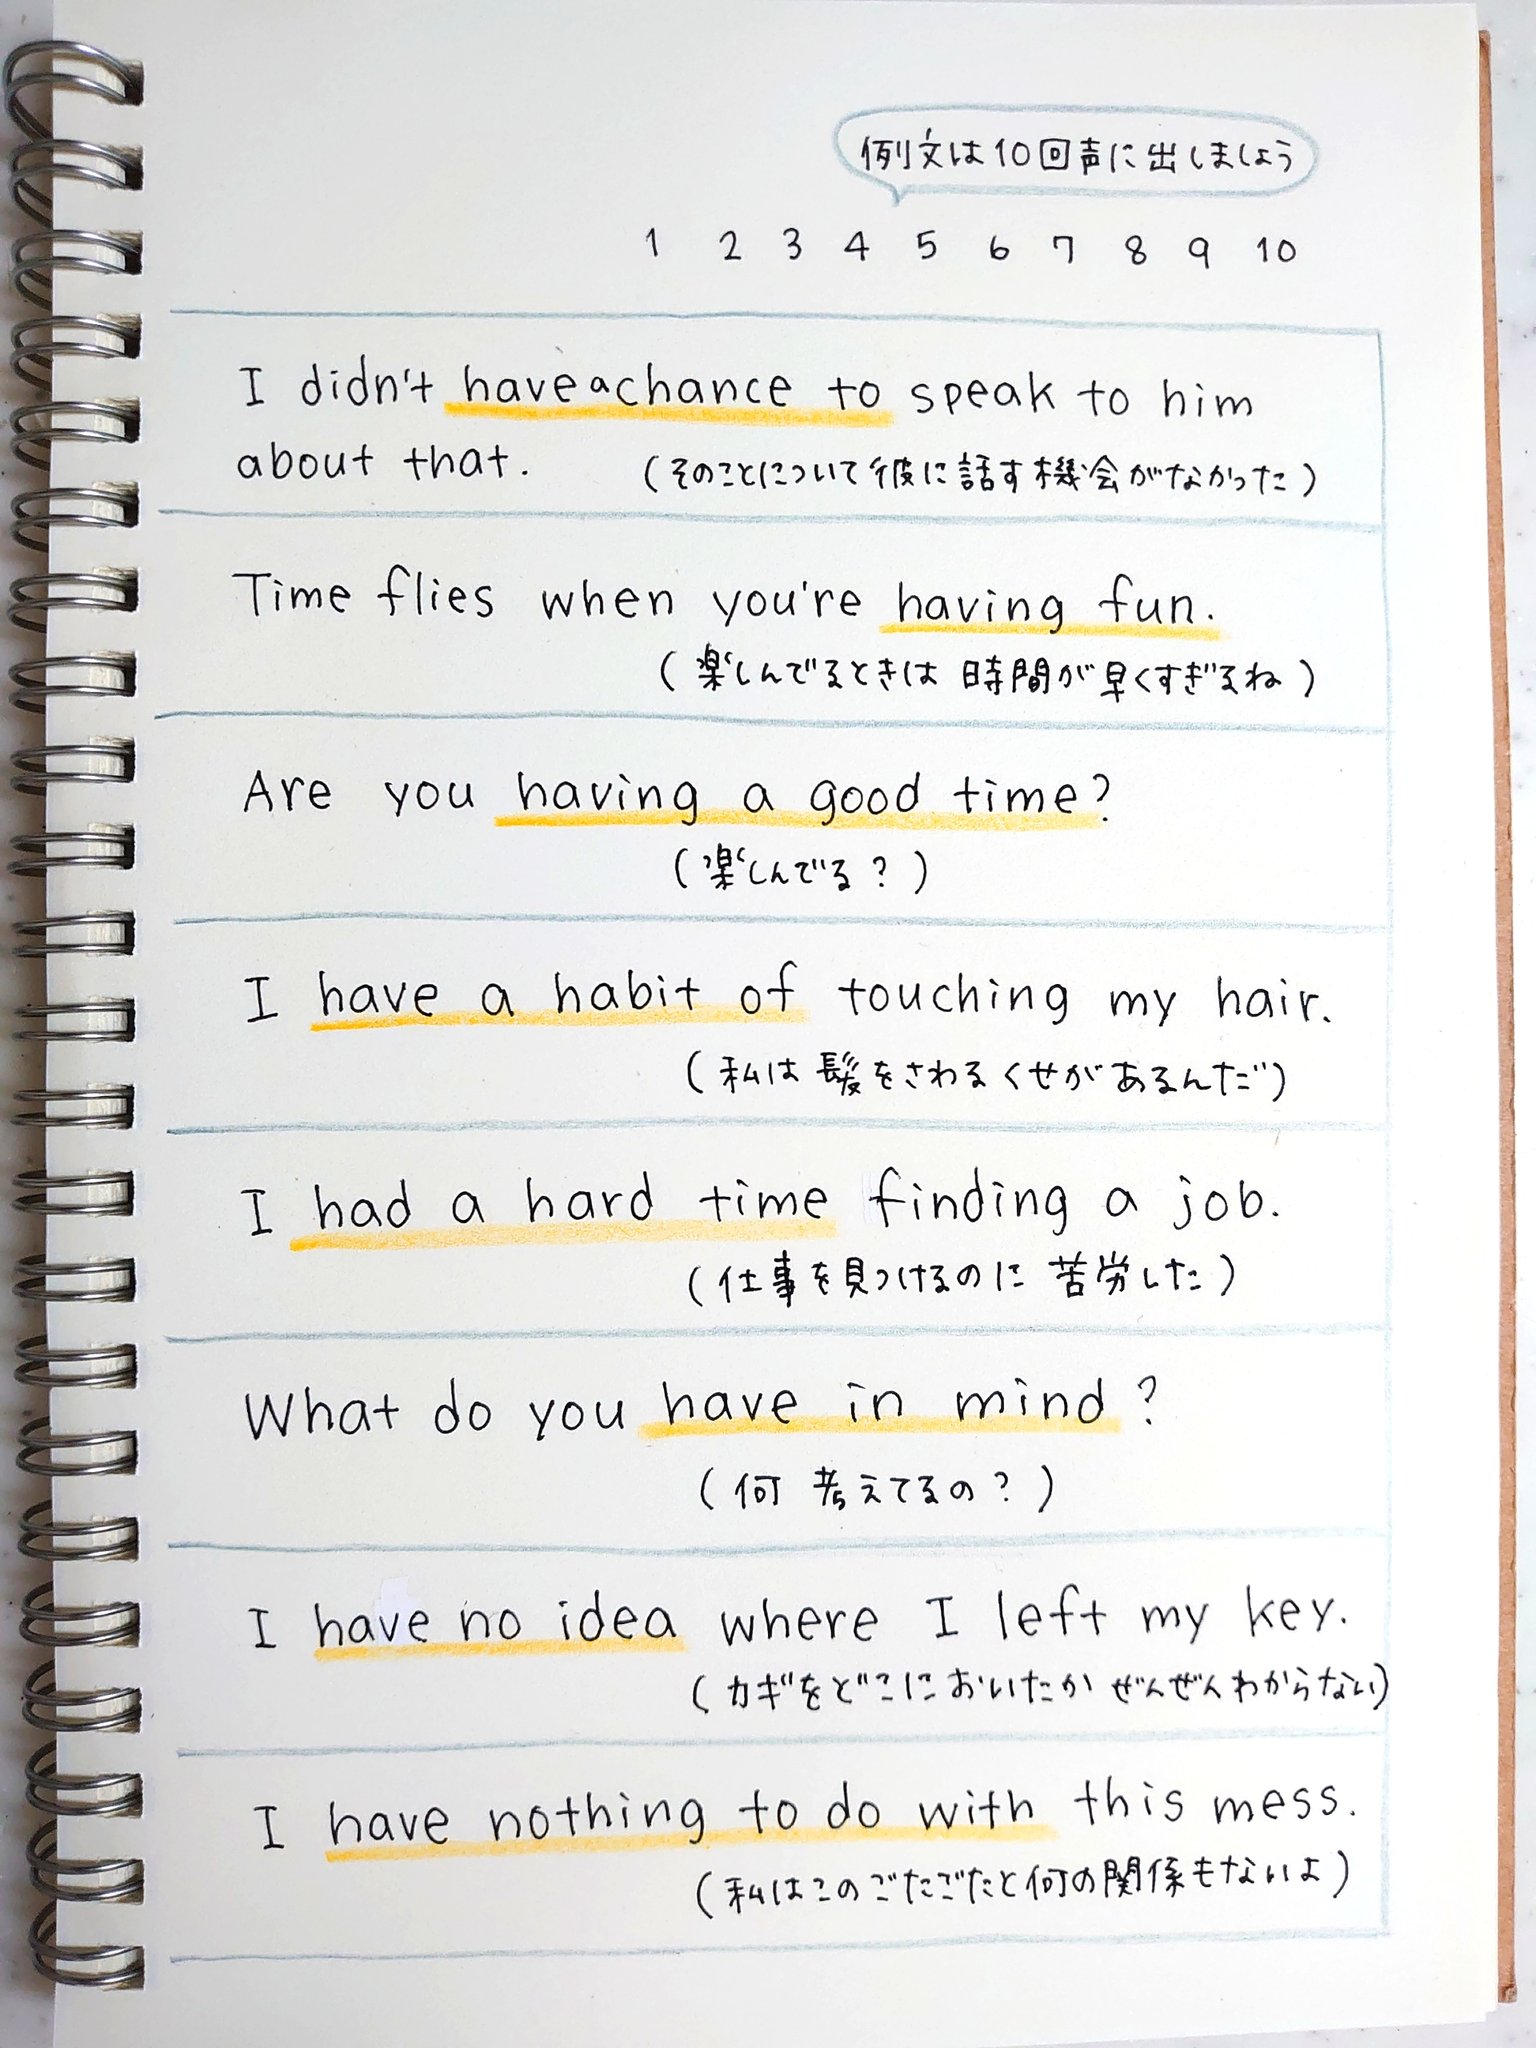 例文は10回声に出しましょう
1 2 3 4 5 6 7 8 9 10
I didn't have a chance to speak to him
about that. (そのことについて彼に話す機会がなかった)
Time flies when you're having fun.
(楽しんでるときは 時間が早くすぎるね)
Are you having a good time?
(楽しんでる?)
I have a habit of touching my hair.
(私は髪をさわるくせがあるんだ)
I had a hard time finding a job.
(仕事を見つけるのに苦労した)
What do you have in mind?
(何考えてるの?)
I have no idea where I left my key.
(カギをどこにおいたか ぜんぜんわからない)
I have nothing to do with this mess.
(私はこのごたごたと何の関係もないよ)